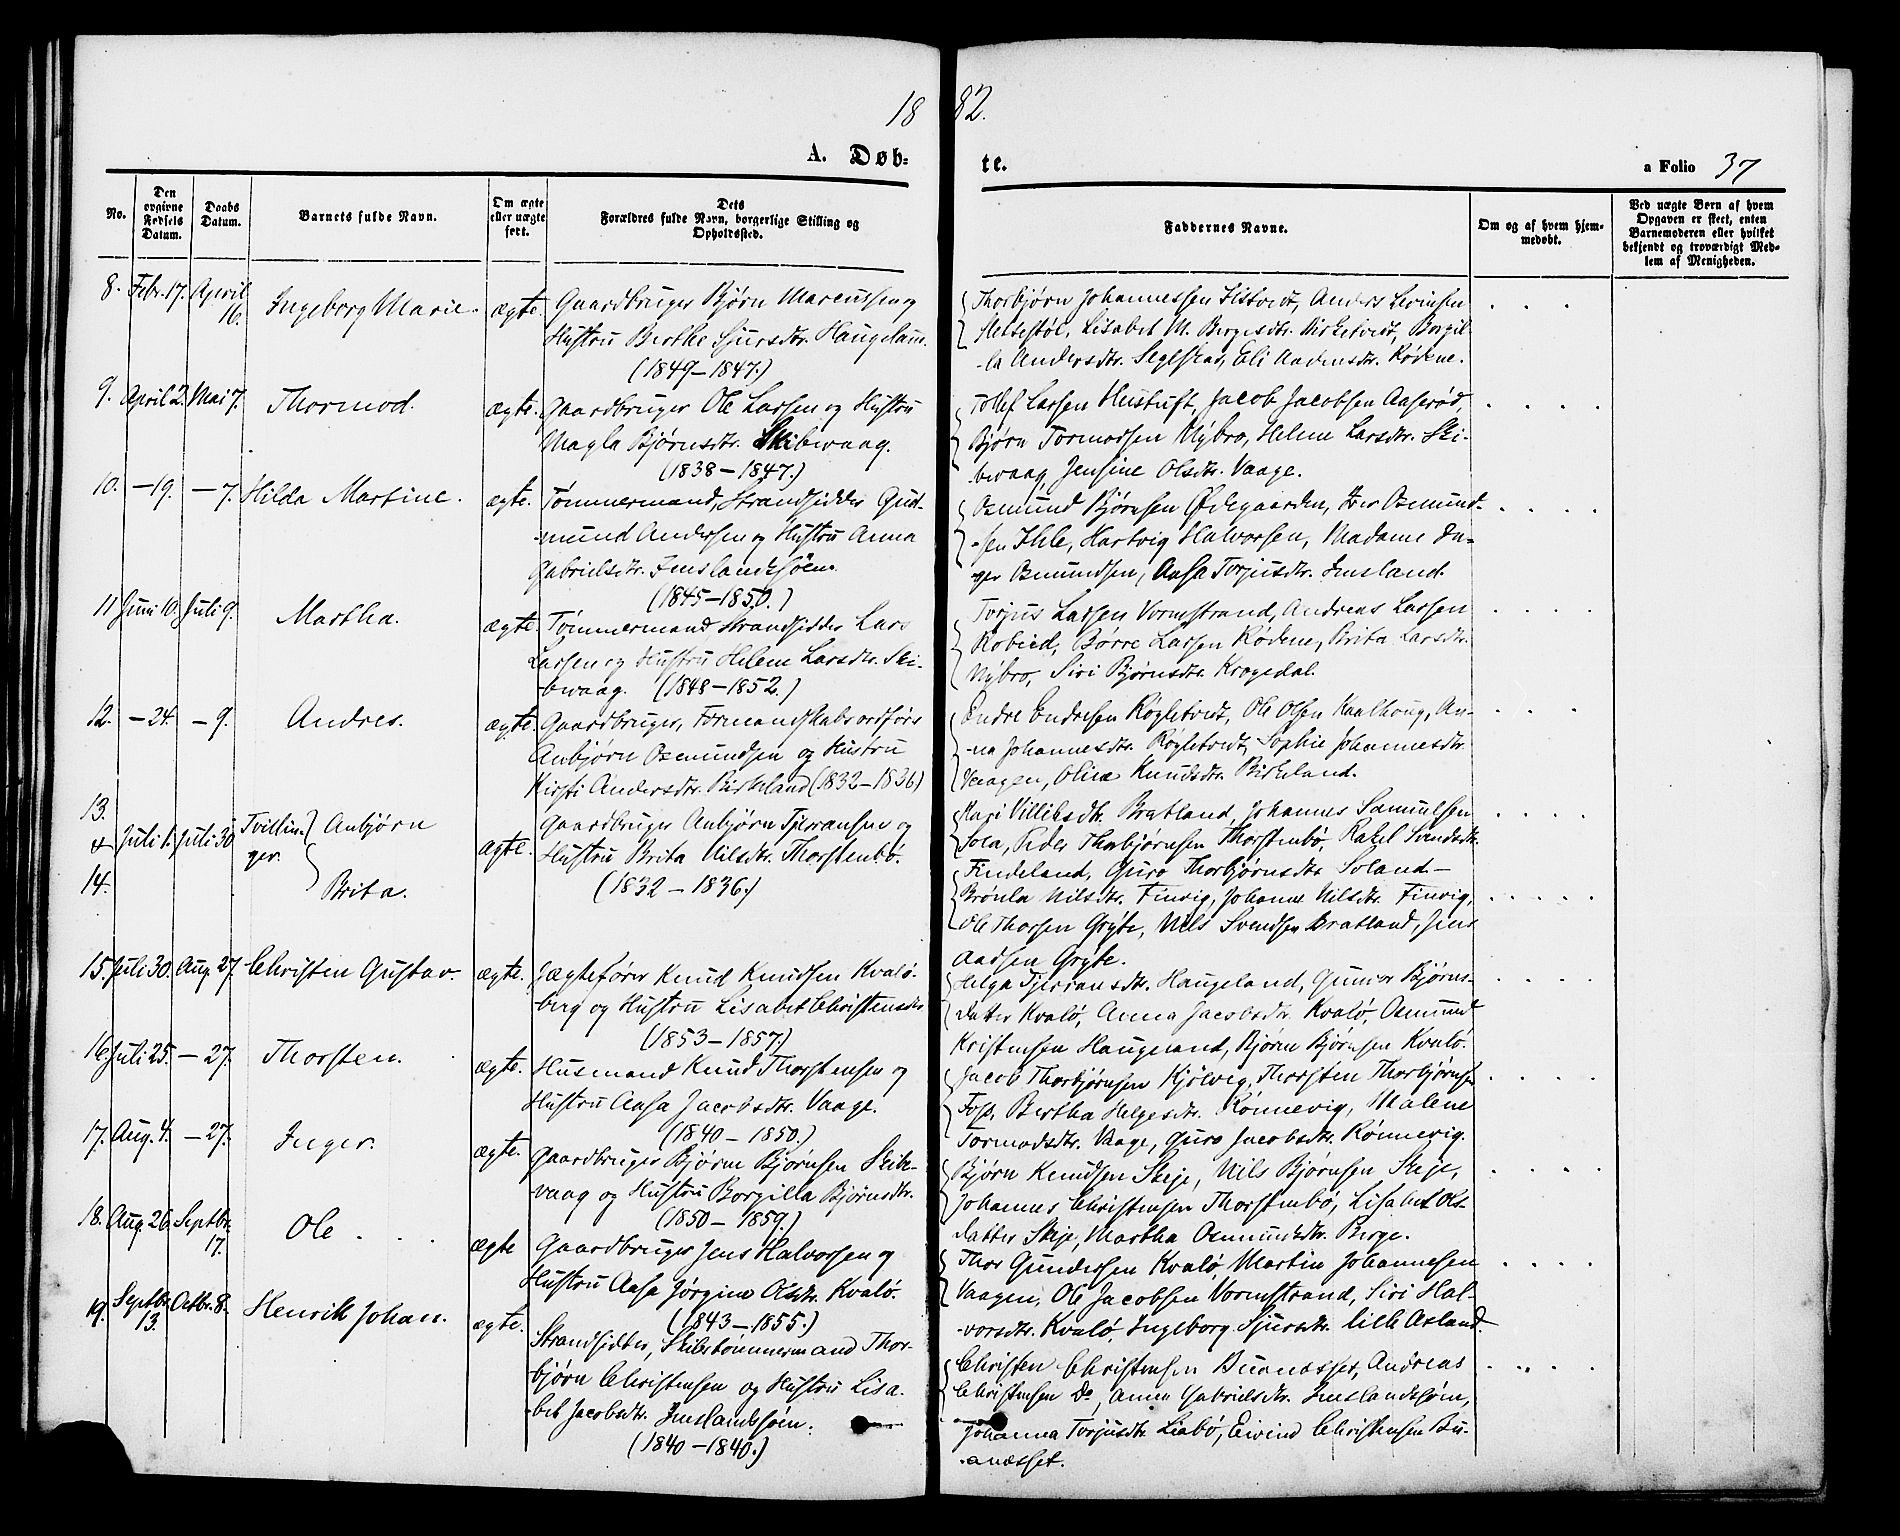 1882.
A. Døbte.
a Folio 37
No.
Den opgivne Fødsels Datum.
Daabs Datum.
Barnets fulde Navn.
Om ægte eller uægte født.
Dets Forældres fulde Navn, borgerlige Stilling og Opholdssted.
Faddernes Navne.
Om og af hvem hjemmedøbt.
Ved uægte Børn af hvem Opgaven er skeet, enten Barnemoderen eller hvilket bekjendt og troværdigt Medlem af Menigheden.
8. Febr. 17. April 16. Ingeborg Marie. ægte. Gaardbruger Bjørn Marcussen og
Hustru Berthe Sjursdtr. Haugeland.
(1849-1847.)
Thorbjørn Johannessen Listvedt, Anders
Lisabet M. Bergesdtr. Birketvedt, Borgil-
-la Andersdtr. Segelstad, Eli Andersdtr. Rødne.
9. April 2. Mai 7. Thormod. ægte. Gaardbruger Ole Larsen og Hustru
Magla Bjørnsdtr. Skibevaag.
(1838-1847.)
Tollef Larsen Hustuft, Jacob Jacobsen Aaserød,
Bjørn Tormodsen Nybro, Helene Larsdtr. Ski-
bevaag, Jensine Olsdtr. Vaage.
10. -19. -7. Hilda Martine. ægte. Tømmermand, Strandsidder Gud-
-mund Andersen og Hustru Anna
Gabrielsdtr. Imslandsjøen.
(1845-1850.)
Osmund Bjørnsen Ødegaarden, Iver Osmund-
-sen Ihle, Hartvig Halvorsen, Madame In-
-ger Osmundsen, Aasa Torjusdtr. Imsland.
11 Juni 10. Juli 9. Martha. ægte. Tømmermand Strandsidder Lars
Larsen og Hustru Helene Larsdtr. Ski-
bevaag. (1848-1852.)
Torjus Larsen Vormstrand, Andreas Larsen
Børre Larsen Rødne, Brita Larsdtr.
Nybro, Siri Bjørnsdtr. Krogedal.
12. -24. -9. Andres. ægte. Gaardbruger, Formandskabsordfører
Anbjørn Osmundsen og Hustru
Kirsti Andersdtr. Birkeland (1832-1836)
Endre Endresen Røgletvedt, Ole Olsen Kaalhoug, An-
-na Johannesdtr. Røgletvedt, Sophie Johannesdtr.
Vaagen, Olina Knudsdtr. Birkeland.
13. & 14. Juli 1. Juli 30 Tvillinger. Anbjørn
Brita. ægte. Gaardbruger Anbjørn Tjeransen og
Hustru Brita Nilsdtr. Thorstenbø.
(1832-1836.)
Mari Villiksdtr. Bratland, Johannes Samuelsen
Peder Thorbjørnsen Thorstenbø, Rakel Svendsdtr.
Findeland, Guro Thorbjørnsdtr. Soland-
Brønla Nilsdtr. Finvig, Johanne Nilsdtr. Finvig,
Ole Thorsen Gryte, Nils Svendsen Bratland, Jens
Aadsen Gryte.
15. Juli 30. Aug. 27. Christen Gustav. ægte. Jægtefører Knud Knudsen Kvalø-
berg og Hustru Lisabet Christensdtr
(1853-1857.)
Helga Tjeransdtr. Haugeland, Gunvor Bjørns-
datter Kvalø, Anna Jacobsdtr. Kvalø, Osmund
Kristensen Haugeland, Bjørn Bjørnsen Kvalø.
16. Juli 25. -27. Thorsten. ægte. Husmand Knud Thorstensen og
Hustru Aasa Jacobsdtr. Vaage.
(1840-1850.)
Jacob Thorbjørnsen Kjølvig, Thorsten Thorbjørnsen
Foss, Bertha Helgesdtr. Rønnevig, Malene
Tormodsdtr. Vaage, Guro Jacobsdtr. Rønnevig.
17. Aug. 4. -27. Inger. ægte. Gaardbruger Bjørn Bjørnsen Skibe-
vaag og Hustru Borgilla Bjørnsdtr.
(1850-1859.)
Bjørn Knudsen Skeje, Nils Bjørnsen Skeje,
Johannes Christensen Thorstenbø, Lisabet Ols-
datter Skeje, Martha Osmundsdtr. Berge.
18. Aug. 26. Septbr. 17. Ole. ægte Gaardbruger Jens Halvorsen og
Hustru Aasa Jørgine Olsdtr. Kvalø.
(1843-1855.)
Thor Gundersen Kvalø, Martin Johannesen
Vaagen, Ole Jacobsen Vormstrand, Siri Hal-
-vorsdtr. Kvalø, Ingeborg Sjursdtr. lille Asland.
19. Septbr. 13. Octbr. 8. Henrik Johan. ægte. Strandsidder, Skibstømmermand Thor-
bjørn Christensen og Hustru Lisa-
-bet Jacobsdtr. Imslandsjøen.
(1840-1840.)
Christen Christensen Buanæsset, Andreas
Christensen Do, Anna Gabrielsdtr. Imslandsjøen,
Johanna Torjusdtr Liabø, Eivind Christensen Bu-
-anæsset.